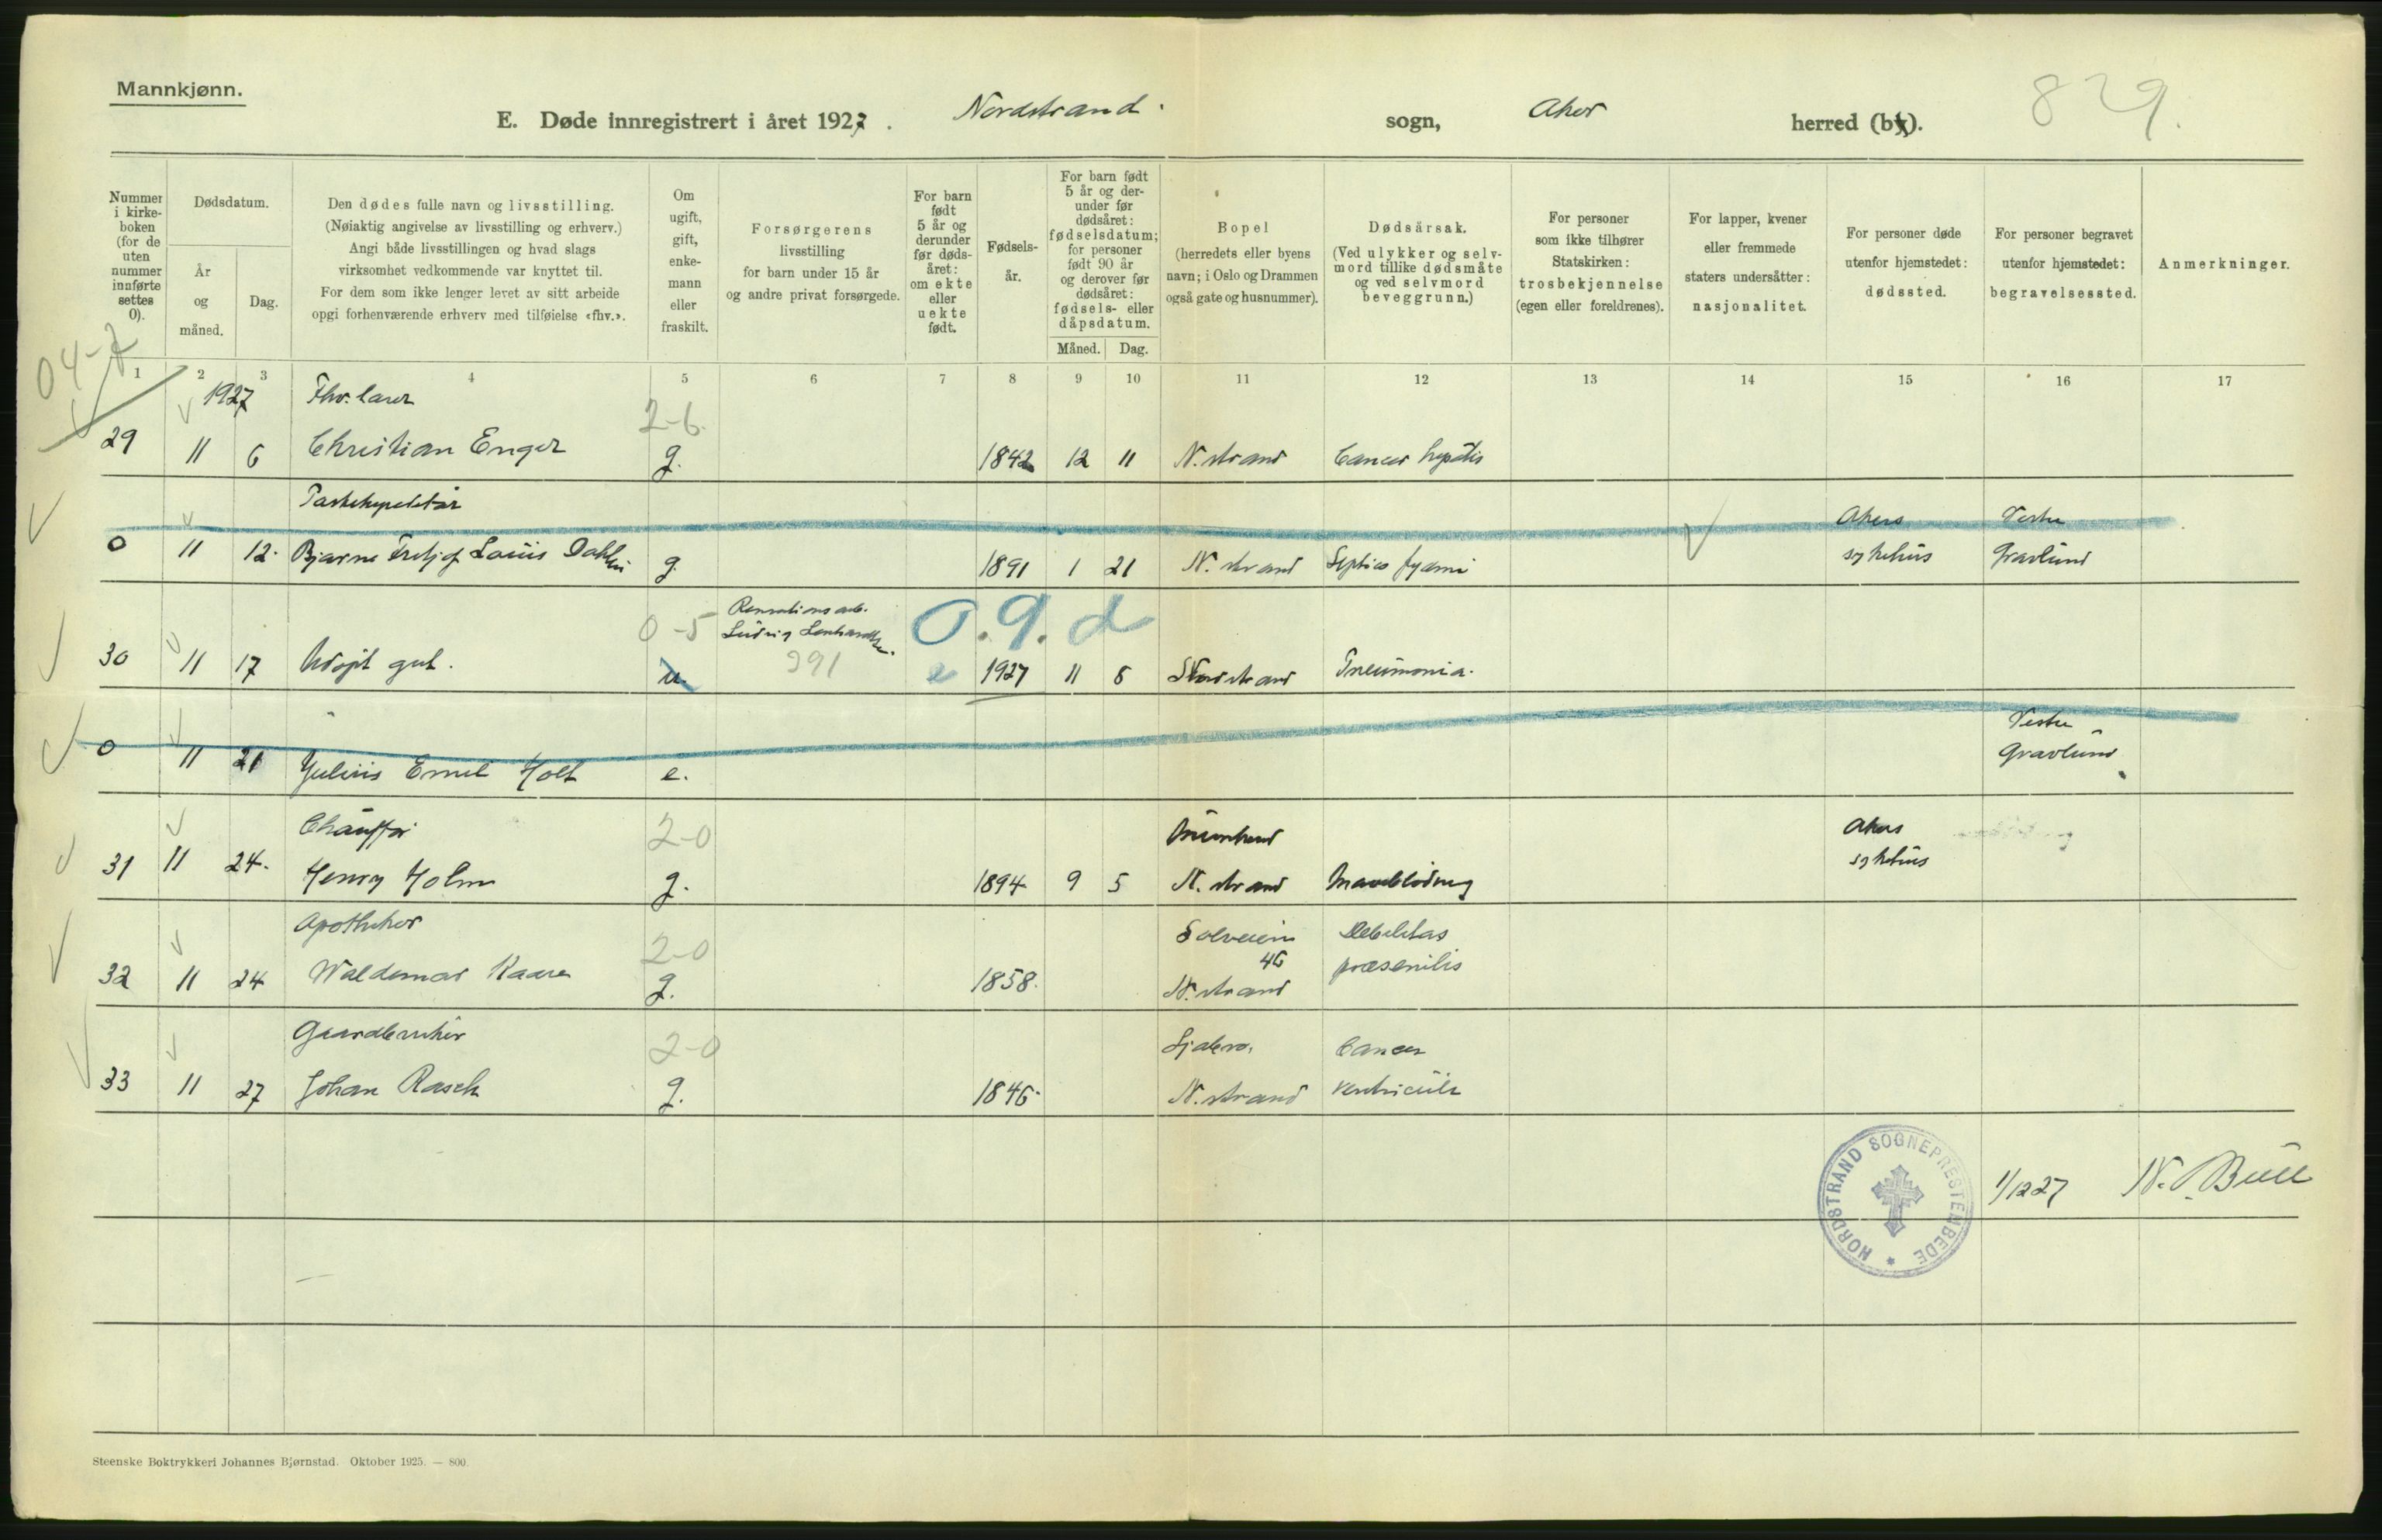 Mannkjønn.
829.
E. Døde innregistrert i året 1927. Nordstrand sogn, Aker herred (by).
Nummer i kirke-boken (for de uten nummer innførte settes 0).
Dødsdatum.
År og måned.
Dag.
Den dødes fulle navn og livsstilling.
(Nøiaktig angivelse av livsstilling og erhverv.)
Angi både livsstillingen og hvad slags
virksomhet vedkommende var knyttet til.
For dem som ikke lenger levet av sitt arbeide
opgi forhenværende erhverv med tilføielse «fhv.».
Om ugift, gift, enke-mann eller fraskilt.
Forsørgerens
livsstilling
for barn under 15 år
og andre privat forsørgede.
For barn født 5 år og derunder før døds-året: om ekte eller uekte født.
Fødsels-år.
For barn født 5 år og der-under før dødsåret: fødselsdatum; for personer født 90 år og derover før dødsåret: fødsels- eller dåpsdatum.
Måned. Dag.
Bopel
(herredets eller byens
navn; i Oslo og Drammen
også gate og husnummer).
Dødsårsak.
(Ved ulykker og selv-
mord tillike dødsmåte
og ved selvmord
beveggrunn.)
For personer
som ikke tilhører
Statskirken:
trosbekjennelse
(egen eller foreldrenes).
For lapper, kvener
eller fremmede
staters undersåtter:
nasjonalitet.
For personer døde
utenfor hjemstedet:
dødssted.
For personer begravet
utenfor hjemstedet:
begravelsessted.
Anmerkninger.
04-7
1 2 3 4 5 6 7 8 9 10 11 12 13 14 15 16 17
1927 Fhv.
2-6
29 11 6 Christian Enger g. 1842 12 11 N. strand Cancer hepatis
Akers Vestre
0 11 12. Bjarne Louis g. 1891 1 21 N. strand sykehus Gravlund
0-5 Ludvig 0.9.d
30 11 17 Udøpt gut. u. 391 e 1927 11 Nordstrand Pneumonia.
Vestre
0 11 21 Julius Emil Holt e. Gravlund
Chauffør 2-0 Akers
31 11 24. Henry Holm g. 1894 9 5 N. strand Maveblødning sykehus
Apotheker 2-0 Solveien Debilitas
46 præsenilis
32 11 24 Waldemar g. 1858. N. strand
Gaardbruker 2-0 Cancer
33 11 27 Johan Rasch g. 1846. N. strand ventriculi
NORDSTRAND SOGNEPRESTEMBEDE
1/12 27 N. Bull
Steenske Boktrykkeri Johannes Bjørnstad. Oktober 1925. — 800.